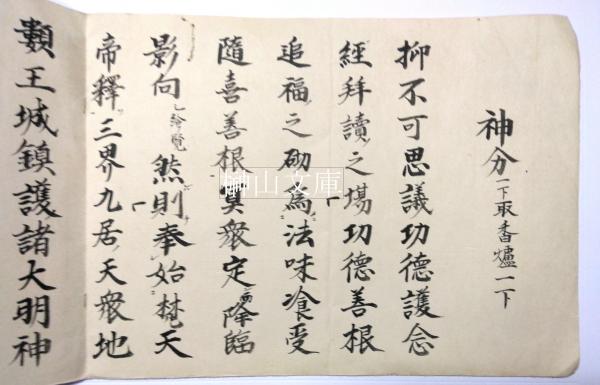 神分 一下取香爐一下
抑不可思議功德護念
經拜讀之場功德善根
追福之砌爲法味飡受
隨喜善根冥衆定降臨
影向 然則奉始梵天
帝釋三界九居天衆地
類王城鎮護諸大明神
榊山文庫